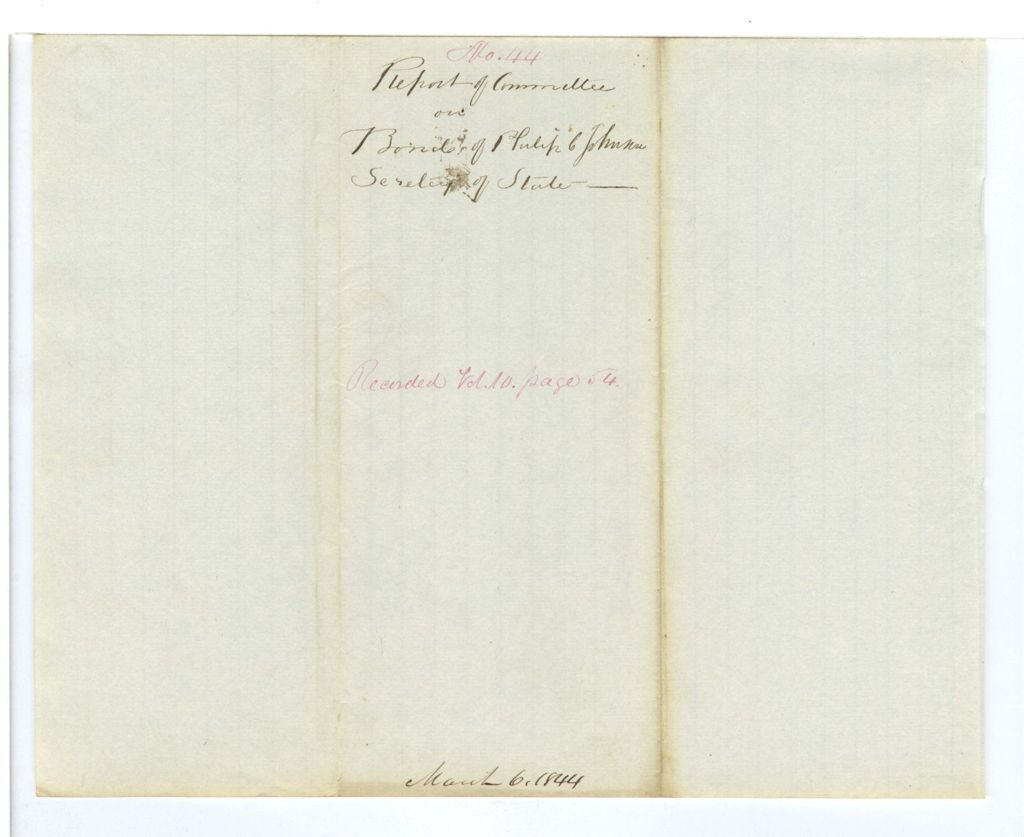 No. 44
Report of Committee
on
Bond of Philip C Johnson
Secretary of State —
Recorded Vol. 10. page 54.
March 6, 1844